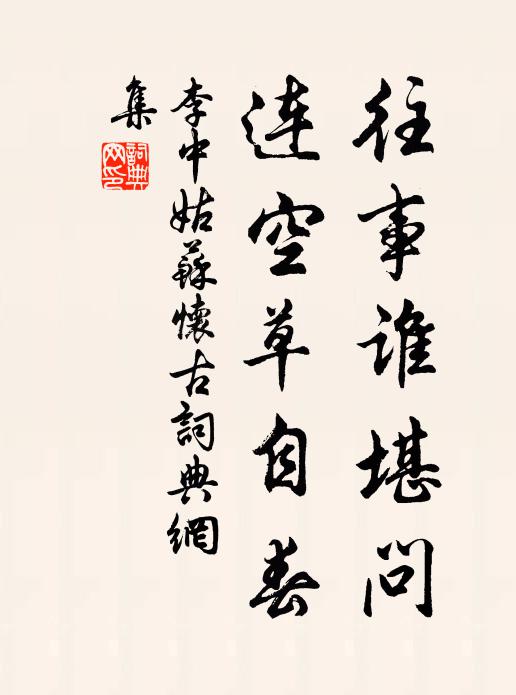 往事誰堪問
連空草自春
李中姑蘇懷古詞典網
集
詞典
网印